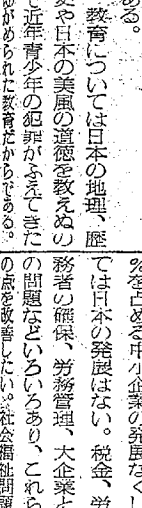 ある。
教育については日本の地理、歴
史や日本の美風の道徳を教えぬの
で近年青少年の犯罪がふえてきた
ゆがめられた教育だからである。
%を占める中小企業の発展なくし
ては日本の発展はない。税金、労
務者の確保、労務管理、大企業と
の問題などいろいろあり、これら
の点を改善したい。社会福祉問題